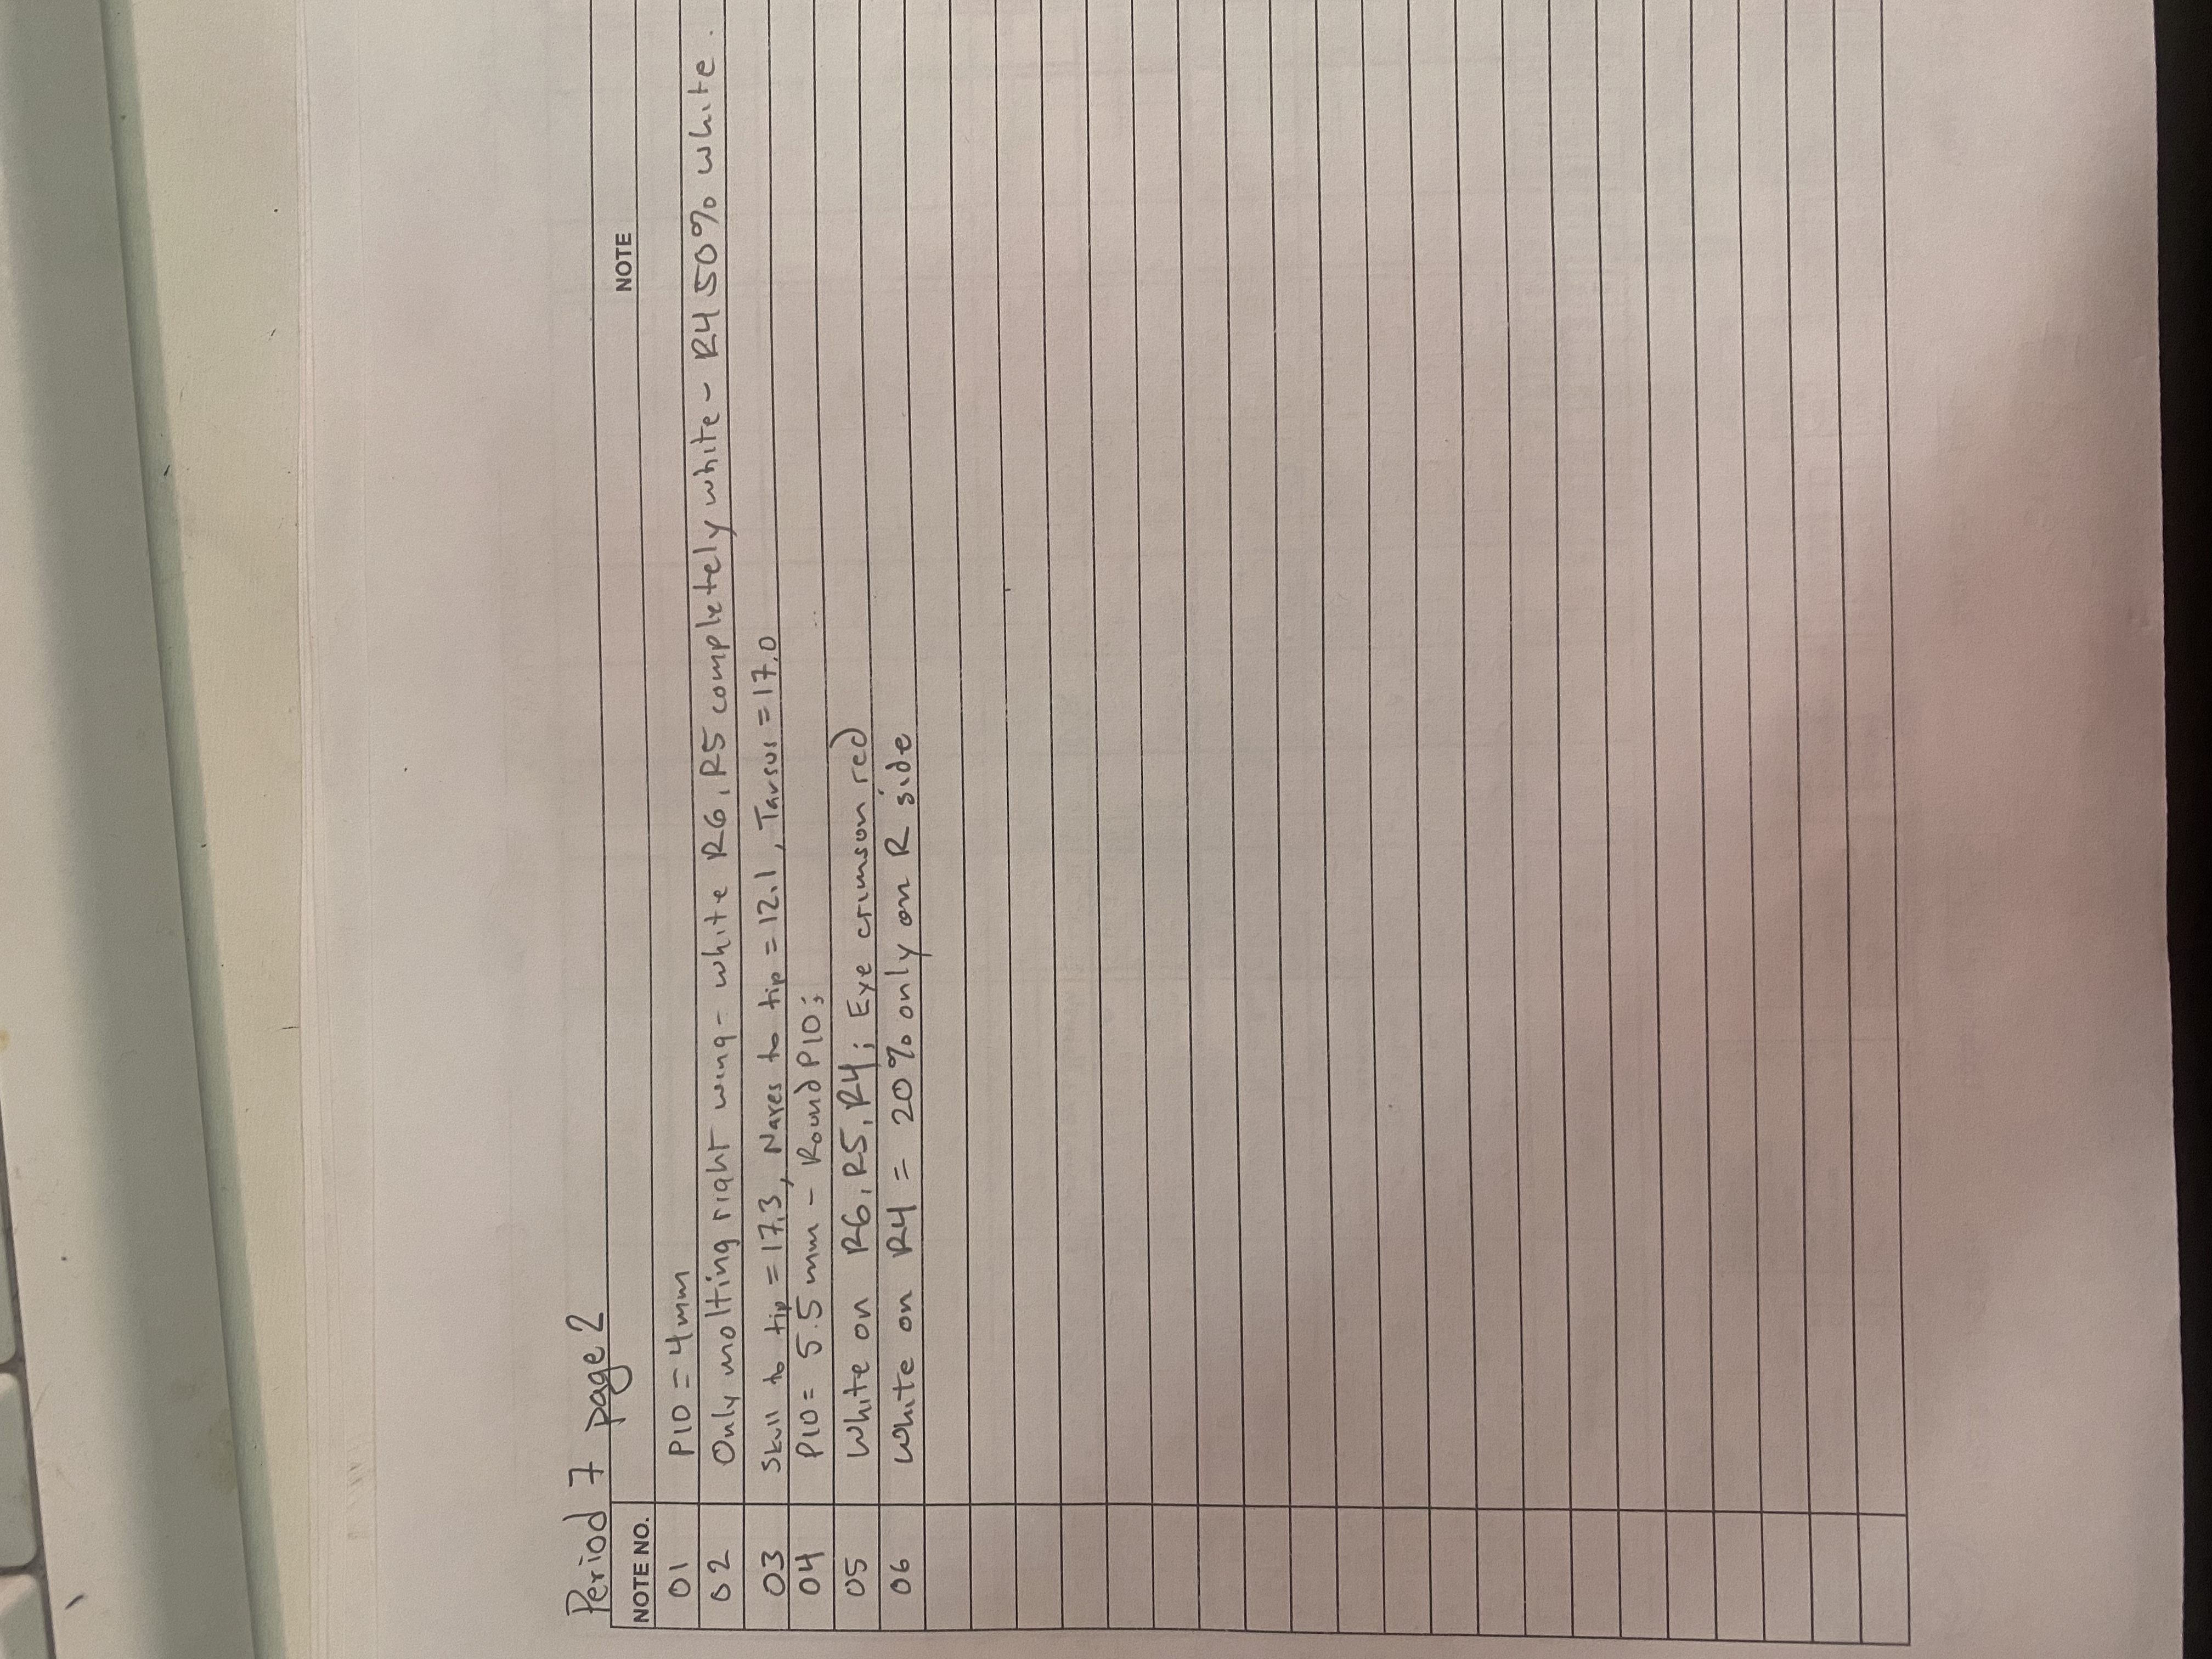 Period 7 page 2
NOTE NO. NOTE
01 P10 = 4mm
02 Only molting right wing - white R6, R5 completely white - R4 50% white.
03 Skull to tip = 17.3, Nares to tip = 12.1, Tarsus = 17.0
04 P10 = 5.5 mm - Round P10;
05 White on R6, R5, R4; Eye crimson red
06 White on R4 = 20% only on R side